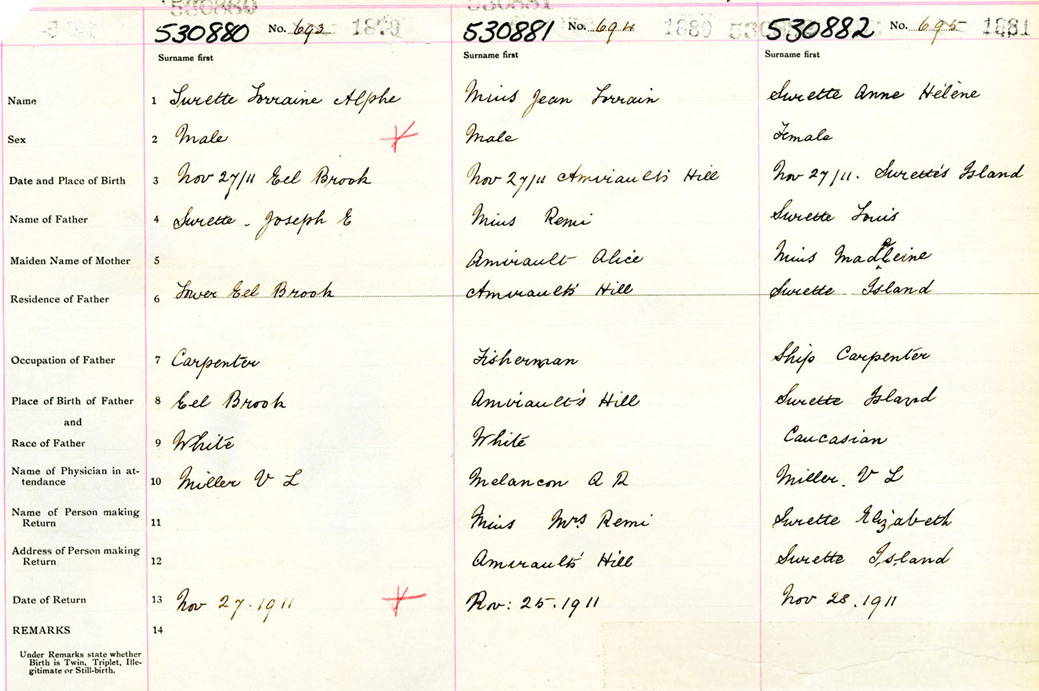 530880 No. 693 1880
530881 No. 694 1880
530882 No. 695 1881
Surname first Surname first Surname first
Name 1 Surette Lorraine Alphe Mius Jean Lorrain Surette Anne Hélène
Sex 2 Male Male Female
Date and Place of Birth 3 Nov 27/11 Eel Brook Nov 27/11 Amirault's Hill Nov 27/11. Surette's Island
Name of Father 4 Surette - Joseph E Mius Remi Surette Louis
Maiden Name of Mother 5 Amirault Alice Mius Madeleine
Residence of Father 6 Lower Eel Brook Amirault's Hill Surette Island
Occupation of Father 7 Carpenter Fisherman Ship Carpenter
Place of Birth of Father 8 Eel Brook Amirault's Hill Surette Island
and
Race of Father 9 White White Caucasian
Name of Physician in at-
tendance 10 Miller V L Melancon A R Miller. V L
Name of Person making
Return 11 Mius Mrs Remi Surette Elizabeth
Address of Person making
Return 12 Amirault's Hill Surette Island
Date of Return 13 Nov 27.1911 Nov: 25.1911 Nov 28.1911
REMARKS 14
Under Remarks state whether
Birth is Twin, Triplet, Ille-
gitimate or Still-birth.